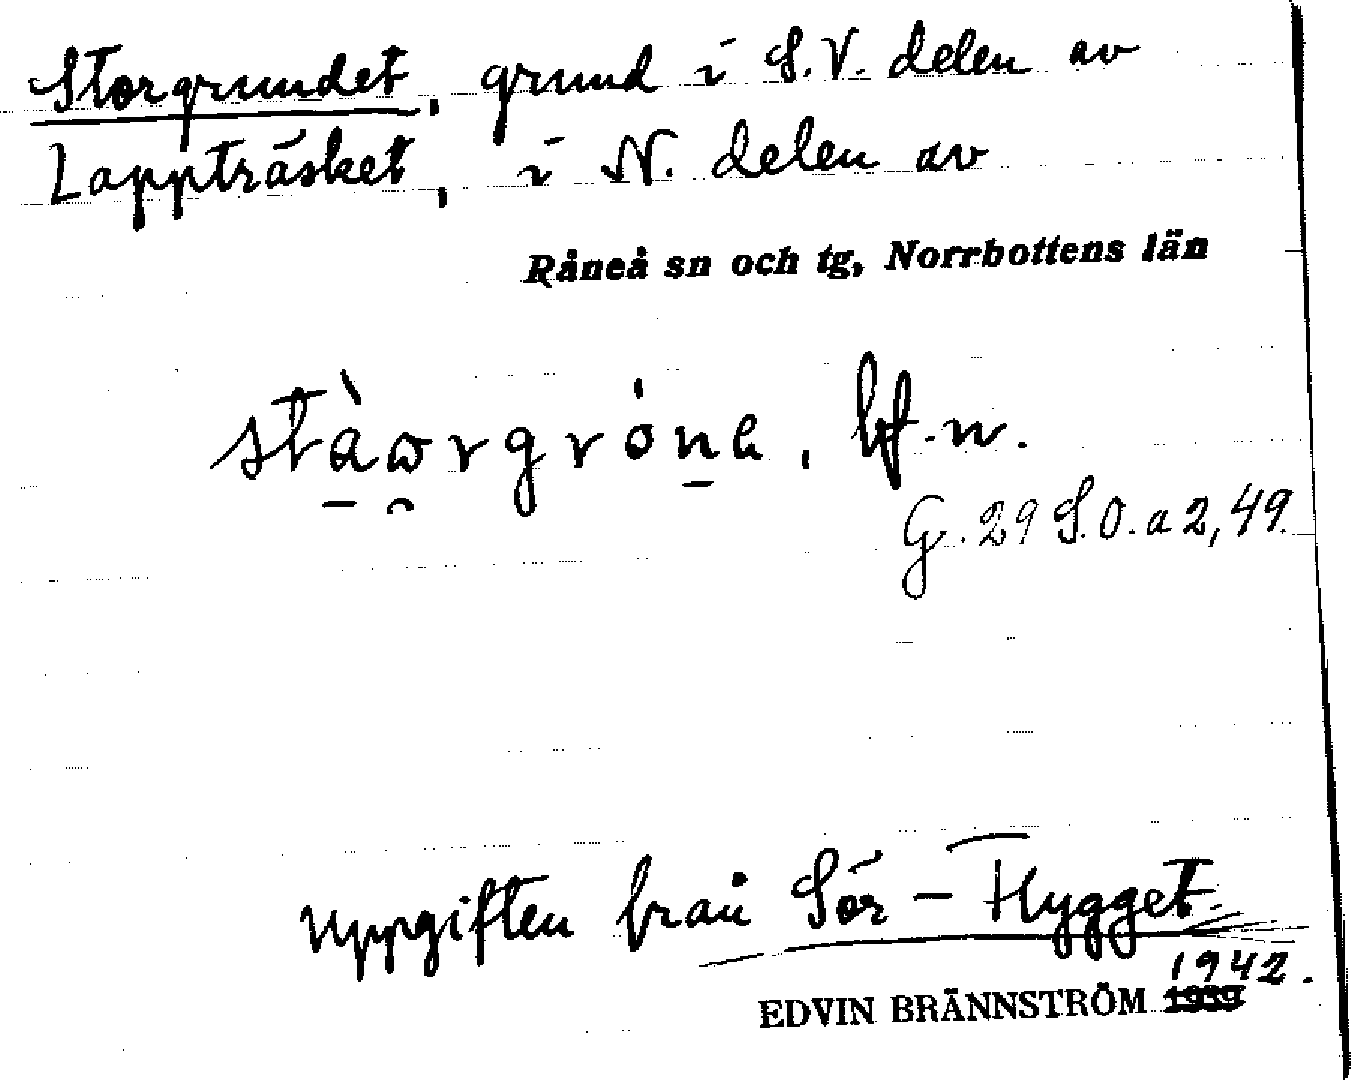 Storgrundet, grund i S.V. delen av
Lappträsket, i N. delen av
Råneå sn och tg, Norrbottens län
stàa̯rgrónа, bf. n.
G. 29 S.O. a 2, 49.
Uppgiften från Sör-Flygget
EDVIN BRÄNNSTRÖM 1942.